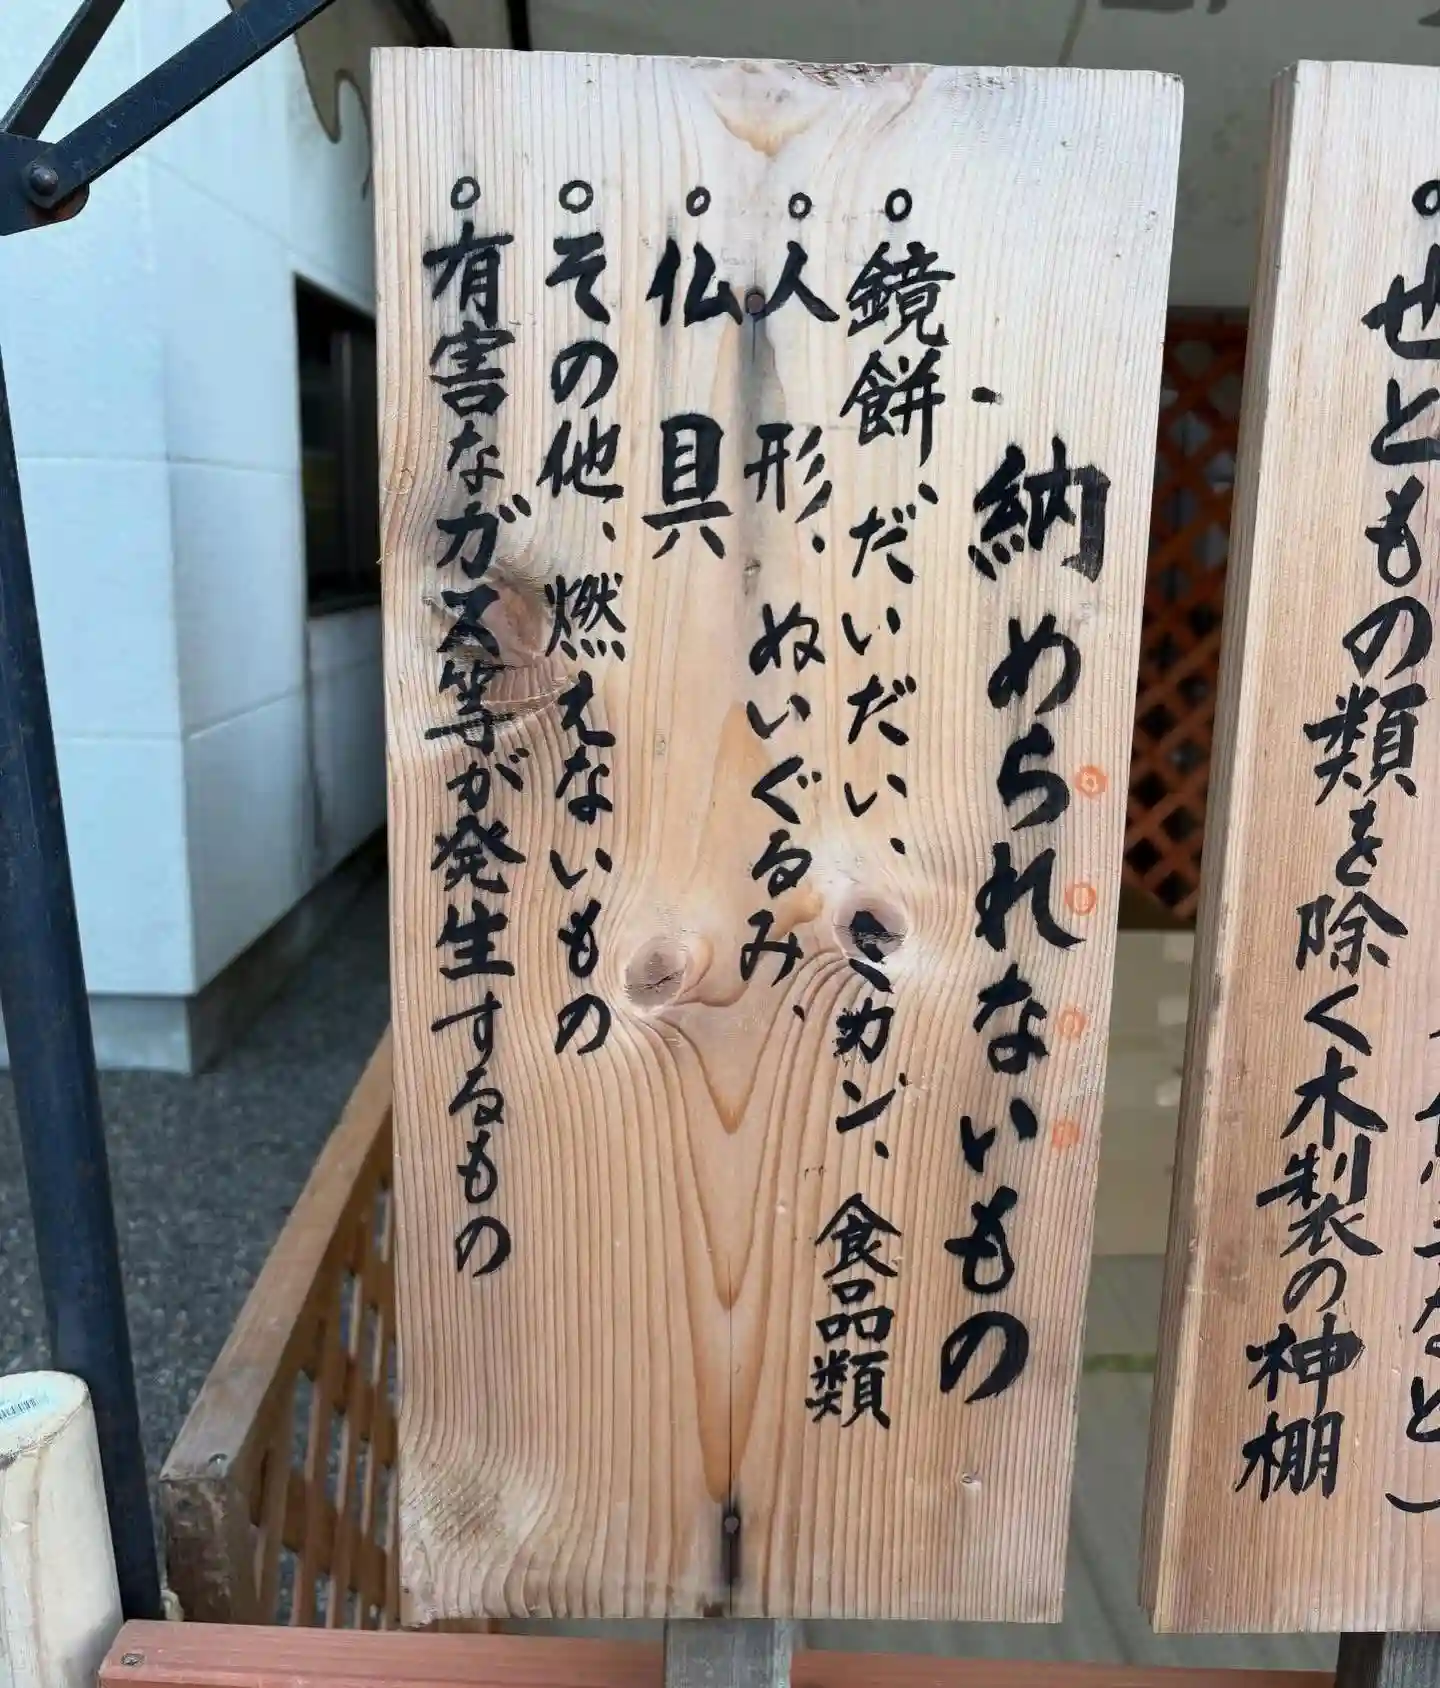 せともの類を除く木製の神棚
納められないもの
○鏡餅、だいだい、ミカン、食品類
○人形、ぬいぐるみ、
○仏具
○その他、燃えないもの
○有害なガス等が発生するもの